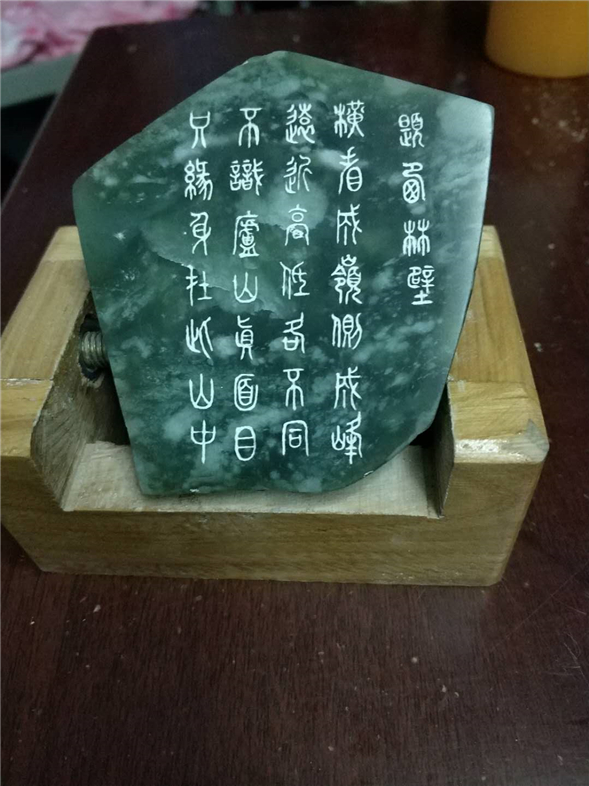 題西林壁
橫看成嶺側成峰
遠近高低各不同
不識廬山眞面目
只緣身在此山中